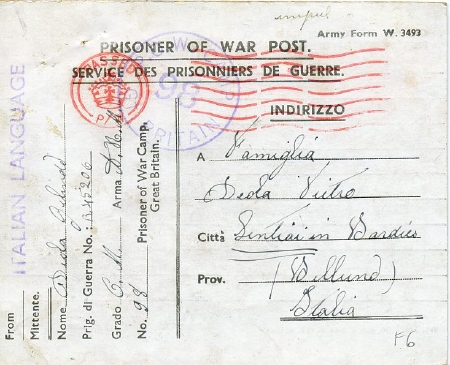 Army Form W. 3493
PRISONER OF WAR POST.
SERVICE DES PRISONNIERS DE GUERRE.
PASSED
P.W.
98
BRITAIN
ITALIAN LANGUAGE
INDIRIZZO
A Famiglia
Deola Pietro
Città in
Prov. (Belluno)
Italia
F6
From
Mittente.
Nome Deola
Prig. di Guerra No.:
Grado C. M. Arma
No. 98 Prisoner of War Camp,
Great Britain.